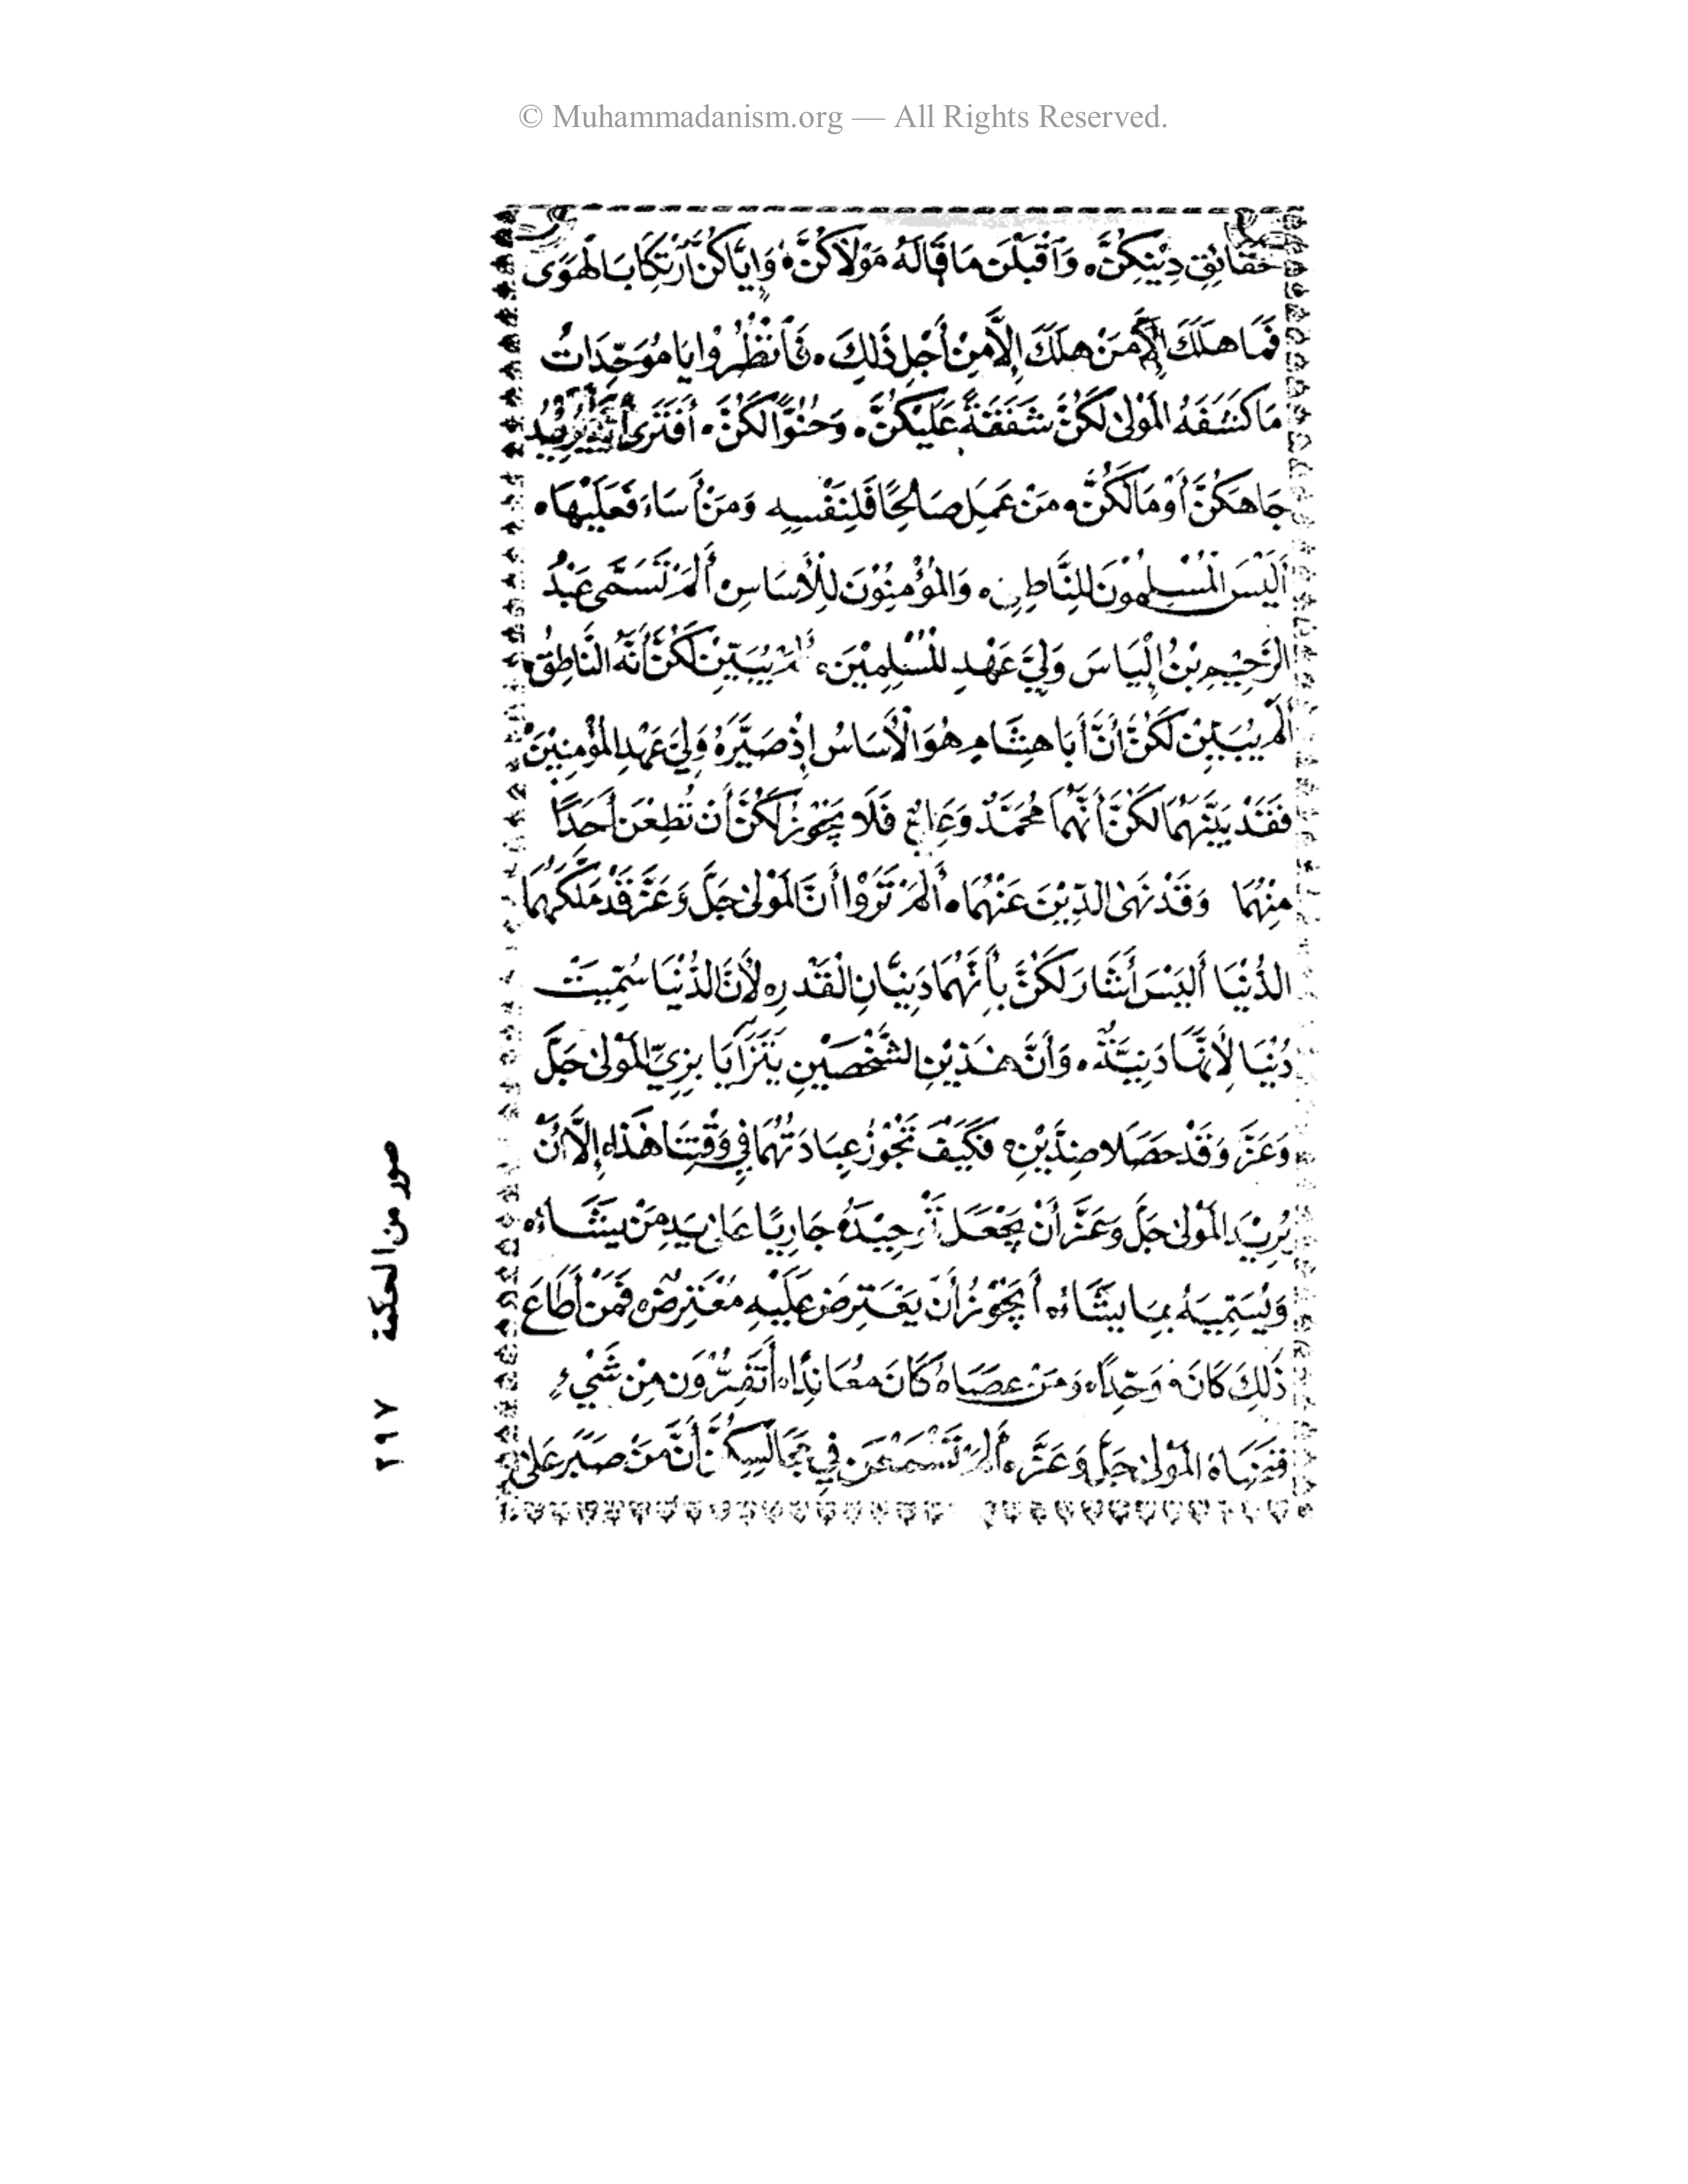 © Muhammadanism.org — All Rights Reserved.
حَقَائِقِ دِيْنِكُنَّ. وَٱقْبَلْنَ مَا قَالَهُ مَوْلَاكُنَّ. وَإِيَّاكُنَّ ٱرْتِكَابَ الْهَوَى
فَمَا هَلَكَ مَنْ هَلَكَ إِلَّا مِنْ أَجْلِ ذَلِكَ. فَٱنْظُرُوْا يَا مُوَحِّدَاتُ
مَا كَشَفَهُ الْمَوْلَىٰ لَكُنَّ شَفَقَةً عَلَيْكُنَّ. وَحُنُوًّا لَكُنَّ. أَفَتَرَى أَنَّهُ يُرِيْدُ
جَاهَكُنَّ أَوْ مَا لَكُنَّ. مَنْ عَمِلَ صَالِحًا فَلِنَفْسِهِ وَمَنْ أَسَاءَ فَعَلَيْهَا.
أَلَيْسَ الْمُسْلِمُوْنَ لِلنَّاطِقِ. وَالْمُؤْمِنُوْنَ لِلْأَسَاسِ أَلَمْ تَسَمَّى عَبْدُ
الرَّحِيْمِ بْنُ إِلْيَاسَ وَلِيَّ عَهْدِ الْمُسْلِمِيْنَ. أَلَمْ يُبَيِّنْ لَكُنَّ أَنَّهُ النَّاطِقُ.
أَلَمْ يُبَيِّنْ لَكُنَّ أَنَّ أَبَا هِشَامٍ هُوَ الْأَسَاسُ إِذْ صَيَّرَهُ وَلِيَّ عَهْدِ الْمُؤْمِنِيْنَ
فَقَدْ بَيَّنَهُمَا لَكُنَّ أَنَّهُمَا مُحَمَّدٌ وَعَلِيٌّ فَلَا يَجُوْزُ لَكُنَّ أَنْ تُطِعْنَ أَحَدًا
مِنْهُمَا وَقَدْ نَهَى الدِّيْنَ عَنْهُمَا. أَلَمْ تَرَوْا أَنَّ الْمَوْلَىٰ جَلَّ وَعَزَّ قَدْ مَلَّكَهُمَا
الدُّنْيَا أَلَيْسَ أَشَارَ لَكُنَّ بِأَنَّهُمَا دَنِيَّانِ الْقَدْرِ. لِأَنَّ الدُّنْيَا سُمِّيَتْ
دُنْيَا لِأَنَّهَا دَنِيَّةٌ. وَأَنَّ هٰذَيْنِ الشَّخْصَيْنِ يَتَزَايَا بِزِيِّ الْمَوْلَىٰ جَلَّ
وَعَزَّ وَقَدْ حَصَلَا ضِدَّيْنِ. فَكَيْفَ تَجُوْزُ عِبَادَتُهُمَا فِي وَقْتِنَا هٰذَا. إِلَّا أَنْ
يُرِيْدَ الْمَوْلَىٰ جَلَّ وَعَزَّ أَنْ يَجْعَلَ تَوْحِيْدَهُ جَارِيًا عَلَىٰ يَدِ مَنْ يَشَاءُ.
وَيُسَمِّيَهُ بِمَا يَشَاءُ. أَيَجُوْزُ أَنْ يَعْتَرِضَ عَلَيْهِ مُعْتَرِضٌ. فَمَنْ أَطَاعَ
ذَلِكَ كَانَ مُوَحِّدًا. وَمَنْ عَصَاهُ كَانَ مُعَانِدًا. أَتَفِرُّوْنَ مِنْ شَيْءٍ
الْمَوْلَىٰ جَلَّ وَعَزَّ. أَلَمْ تَسْمَعْنَ فِي مَجَالِسِكُنَّ أَنَّ مَنْ صَبَرَ عَلَىٰ
صور من الحكمة ٢١٧